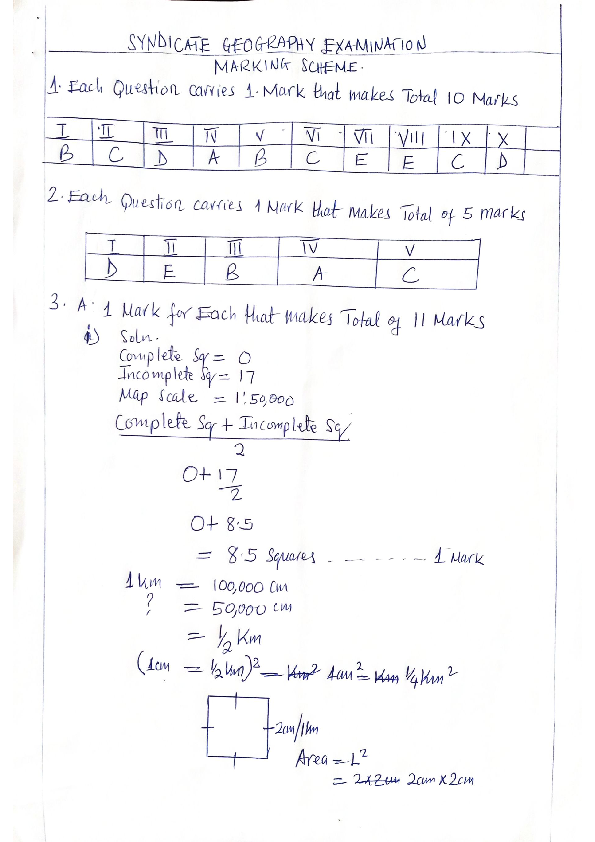 SYNDICATE GEOGRAPHY EXAMINATION
MARKING SCHEME.
1. Each Question carries 1. Mark that makes Total 10 Marks
I II III IV V VI VII VIII IX X
B C D A B C E E C D
2. Each Question carries 1 Mark that makes Total of 5 marks
I II III IV V
D E B A C
3. A. 1 Mark for Each that makes Total of 11 Marks
i) Soln.
Complete Sq = 0
Incomplete Sq = 17
Map Scale = 1:50,000
Complete Sq + Incomplete Sq
2
0 + 17
2
0 + 8.5
= 8.5 Squares - - - - - - - 1 Mark
1 km = 100,000 cm
? = 50,000 cm
= 1/2 Km
(1cm = 1/2 km)² = Km² 1cm² = Km 1/4 Km²
2cm/1km
Area = L²
= 2x2cm 2cm x 2cm